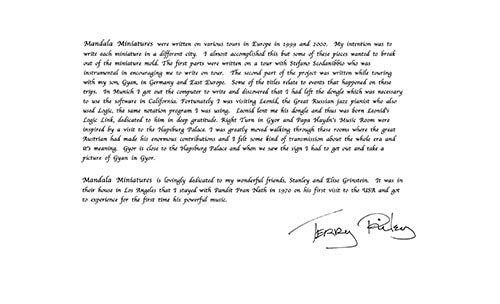 Mandala Miniatures were written on various tours in Europe in 1999 and 2000. My intention was to
write each miniature in a different city. I almost accomplished this but some of these pieces wanted to break
out of the miniature mold. The first parts were written on a tour with Stefano Scodanibbio who was
instrumental in encouraging me to write on tour. The second part of the project was written while touring
with my son, Gyan, in Germany and East Europe. Some of the titles relate to events that happened on these
trips. In Munich I got out the computer to write and discovered that I had left the dongle which was necessary
to use the software in California. Fortunately I was visiting Leonid, the Great Russian jazz pianist who also
used Logic, the same notation program I was using. Leonid lent me his dongle and thus was born Leonid's
Logic Link, dedicated to him in deep gratitude. Right Turn in Gyor and Papa Haydn's Music Room were
inspired by a visit to the Hapsburg Palace. I was greatly moved walking through these rooms where the great
Austrian had made his enormous contributions and I felt some kind of transmission about the whole era and
it's meaning. Gyor is close to the Hapsburg Palace and when we saw the sign I had to get out and take a
picture of Gyan in Gyor.
Mandala Miniatures is lovingly dedicated to my wonderful friends, Stanley and Elise Grinstein. It was in
their house in Los Angeles that I stayed with Pandit Pran Nath in 1970 on his first visit to the USA and got
to experience for the first time his powerful music.
Terry Riley